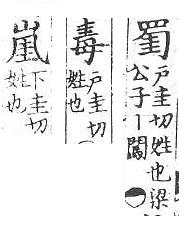 蜀
戶圭切姓也梁
公子丨闖
毒
戶圭切
姓也
嵐
下圭切
姓也